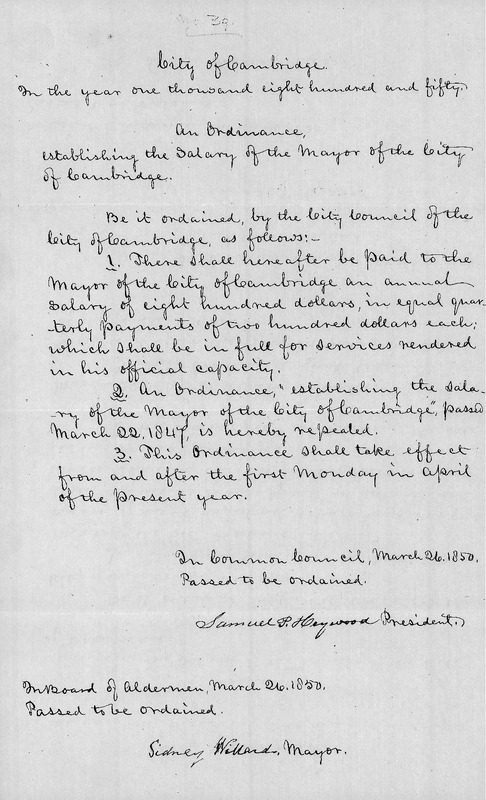 39.
City of Cambridge.
In the year one thousand eight hundred and fifty.
An Ordinance,
establishing the Salary of the Mayor of the City
of Cambridge.
Be it ordained, by the City Council of the
City of Cambridge, as follows:-
1. There shall hereafter be paid to the
Mayor of the City of Cambridge an annual
Salary of eight hundred dollars, in equal quar-
terly payments of two hundred dollars each;
which shall be in full for services rendered
in his official capacity.
2. An Ordinance, "establishing the sala-
ry of the Mayor of the City of Cambridge", passed
March 22, 1847, is hereby repealed.
3. This Ordinance shall take effect
from and after the first Monday in April
of the present year.
In Common Council, March 26. 1850.
Passed to be ordained.
Samuel P. Heywood President.
In Board of Aldermen, March 26. 1850.
Passed to be ordained.
Sidney Willard, Mayor.